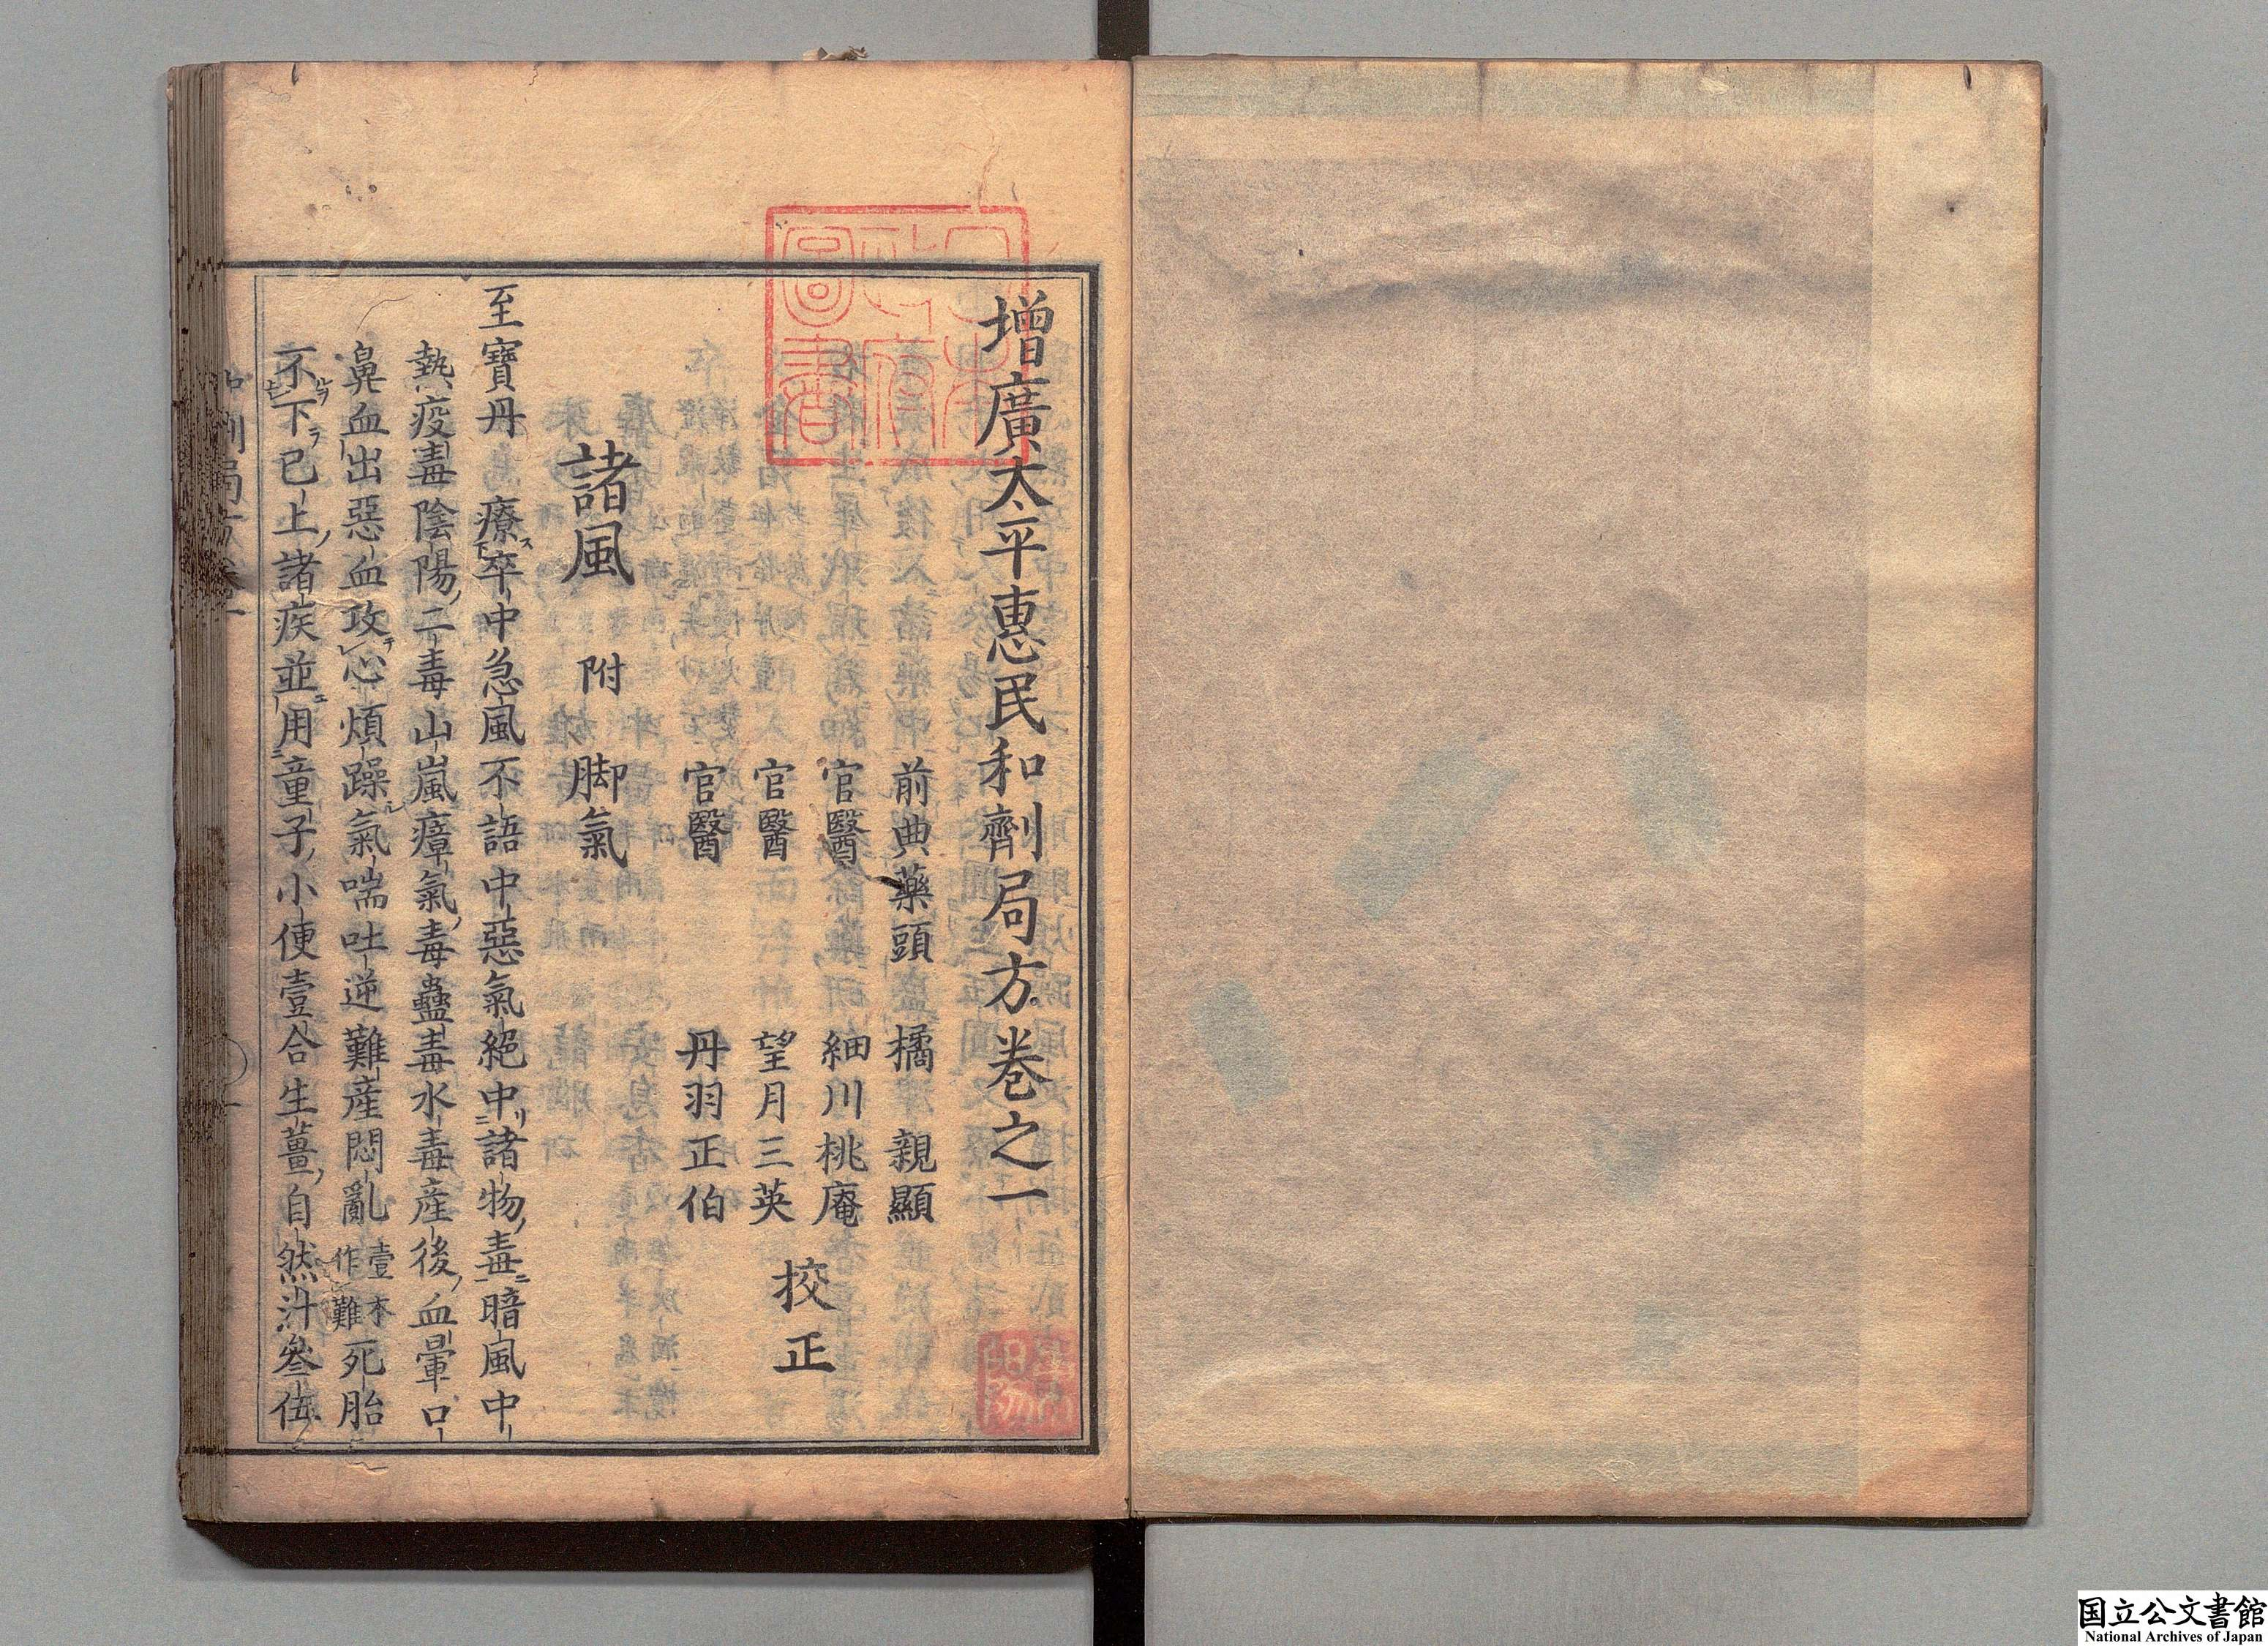 增廣太平惠民和劑局方卷之一
前典藥頭 橘 親顯
官醫 細川桃庵
官醫 望月三英
官醫 丹羽正伯
挍正
諸風 附 脚氣
至寶丹 療卒中急風不語中惡氣絕中諸物毒暗風中
熱疫毒陰陽二毒山嵐瘴氣毒蠱毒水毒産後血暈口
鼻血出惡血攻心煩躁氣喘吐逆難産悶亂 壹本作難 死胎
不下已上諸疾並用童子小便壹合生薑自然汁叄伍
国立公文書館
National Archives of Japan